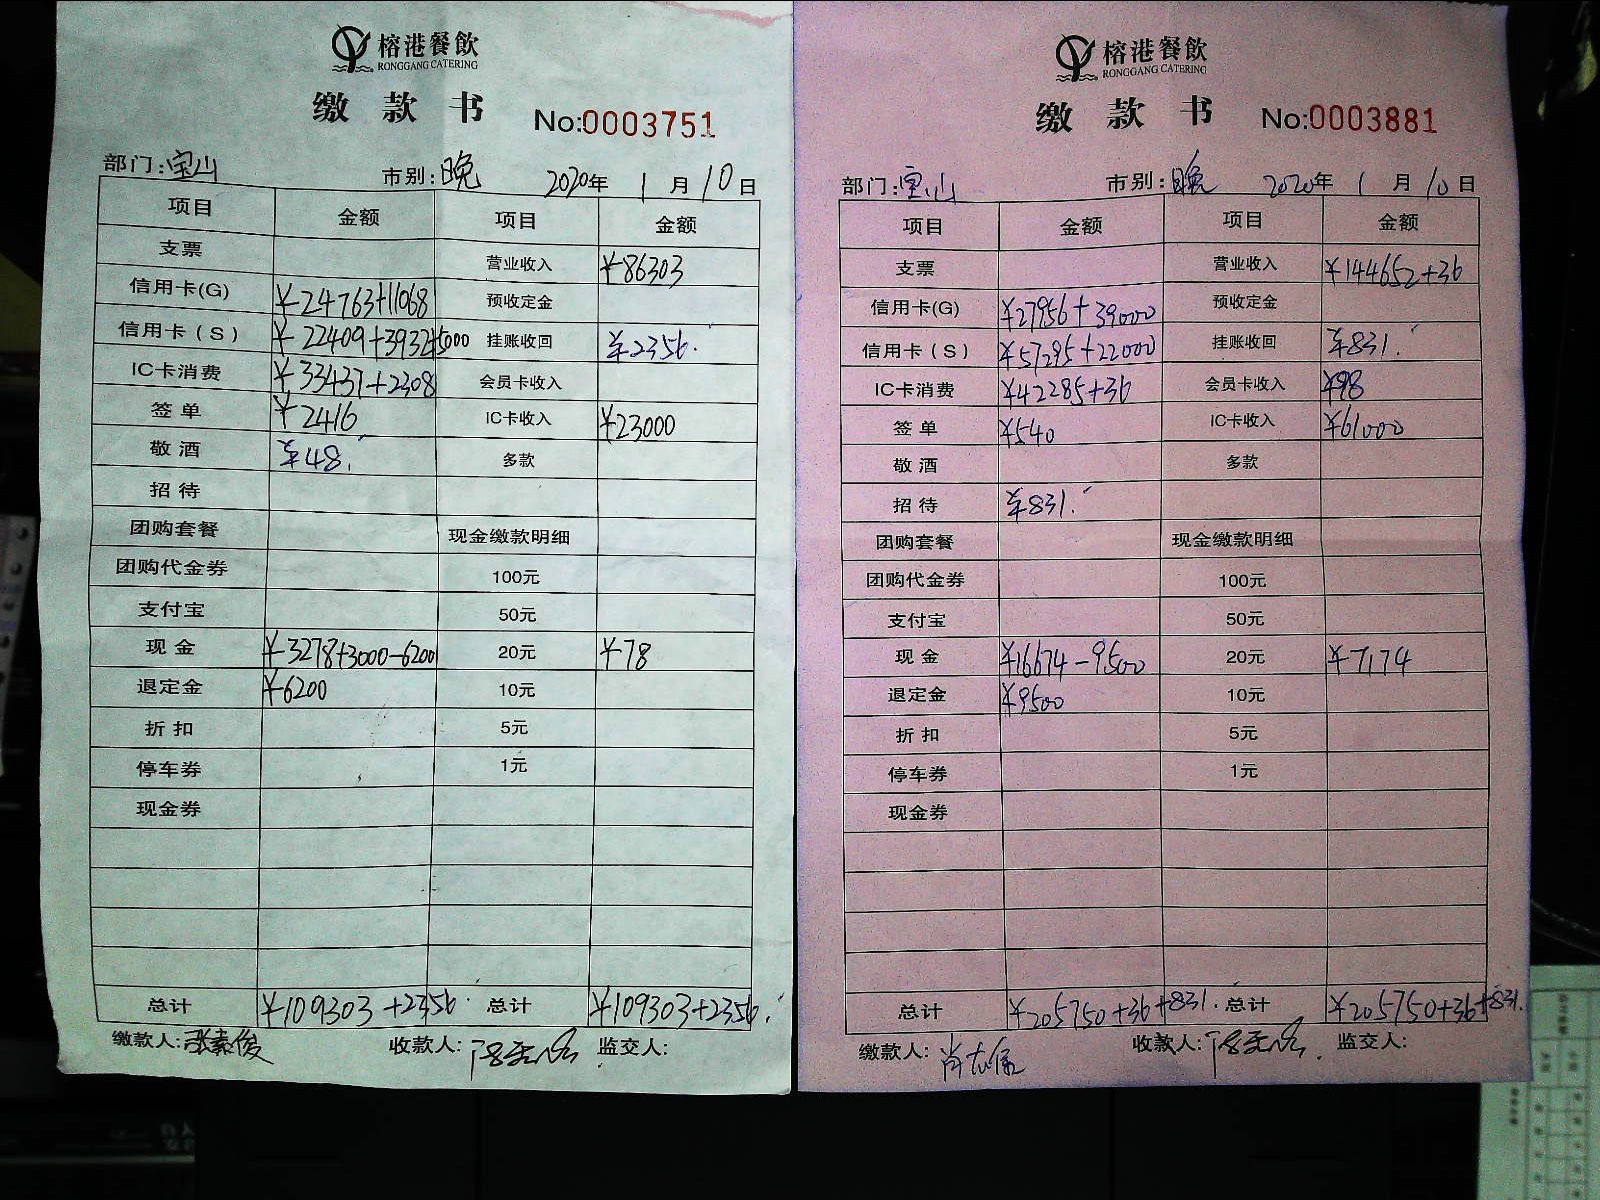 榕港餐飲
RONGGANG CATERING
缴款书 No:0003751
部门:宝山 市别:晚 2020年 1月10日
项目 金额 项目 金额
支票 营业收入 ¥86303
信用卡(G) ¥24763+11068 预收定金
信用卡(S) ¥22409+3932+5000 挂账收回 ¥2356.
IC卡消费 ¥33437+2308 会员卡收入
签单 ¥2416 IC卡收入 ¥23000
敬酒 ¥48. 多款
招待
团购套餐 现金缴款明细
团购代金券 100元
支付宝 50元
现金 ¥3278+3000-6200 20元 ¥78
退定金 ¥6200 10元
折扣 5元
停车券 1元
现金券
总计 ¥109303+2356. 总计 ¥109303+2356.
缴款人:张素俊 收款人: 监交人:
榕港餐飲
RONGGANG CATERING
缴款书 No:0003881
部门:宝山 市别:晚 2020年 1月10日
项目 金额 项目 金额
支票 营业收入 ¥144652+36
信用卡(G) ¥27956+39000 预收定金
信用卡(S) ¥57295+22000 挂账收回 ¥831.
IC卡消费 ¥42285+36 会员卡收入 ¥98
签单 ¥540 IC卡收入 ¥61000
敬酒 多款
招待 ¥831.
团购套餐 现金缴款明细
团购代金券 100元
支付宝 50元
现金 ¥16674-9500 20元 ¥7174
退定金 ¥9500 10元
折扣 5元
停车券 1元
现金券
总计 ¥205750+36+831. 总计 ¥205750+36+831.
缴款人: 收款人: 监交人: